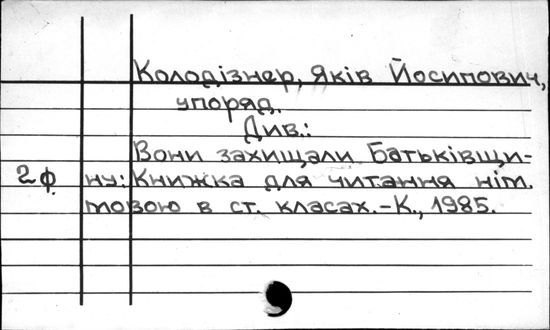 Колодізнер, Яків Йосипович,
упоряд.
Див.:
Вони захищали Батьківщи-
2ф ну: Книжка для читання нім.
мовою в ст. класах.-К., 1985.